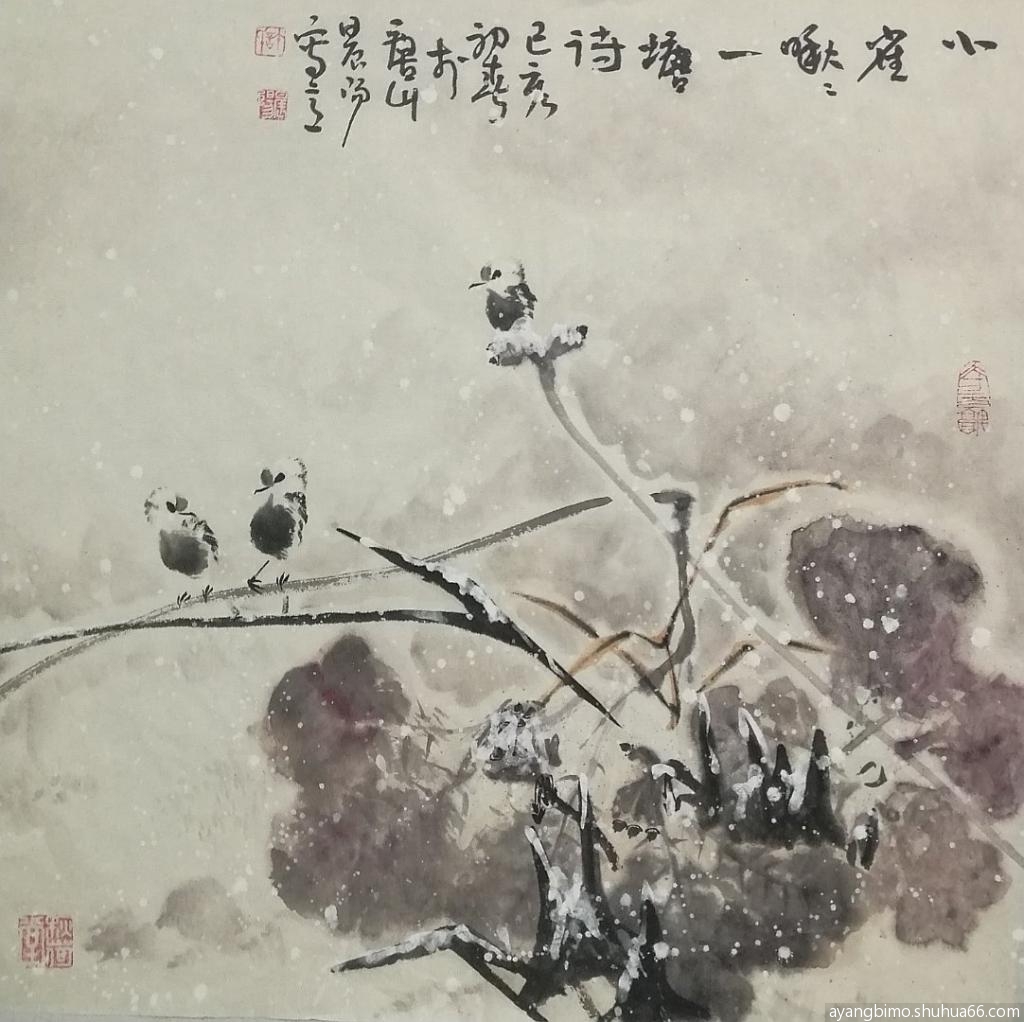 小雀啾〻一塘诗
己亥
初春
於
唐山
晨阳
ayangbimo.shuhua66.com